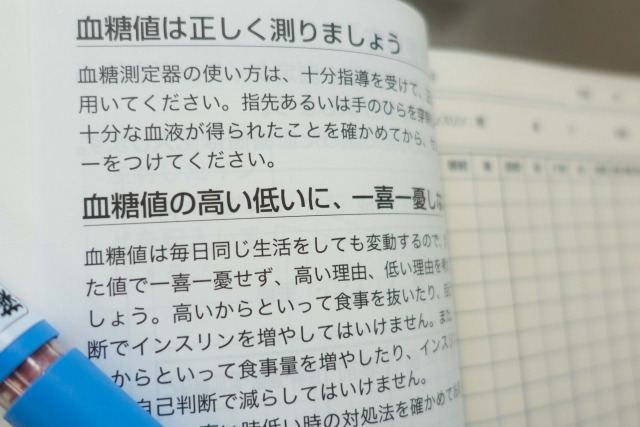 血糖値は正しく測りましょう
血糖測定器の使い方は、十分指導を受けて、
用いてください。指先あるいは手のひらを
十分な血液が得られたことを確かめてから、
ーをつけてください。
血糖値の高い低いに、一喜一憂し
血糖値は毎日同じ生活をしても変動するので、
た値で一喜一憂せず、高い理由、低い理由を
しょう。高いからといって食事を抜いたり、
断でインスリンを増やしてはいけません。また
からといって食事量を増やしたり、インス
自己判断で減らしてはいけません。
い時低い時の対処法を確かめて